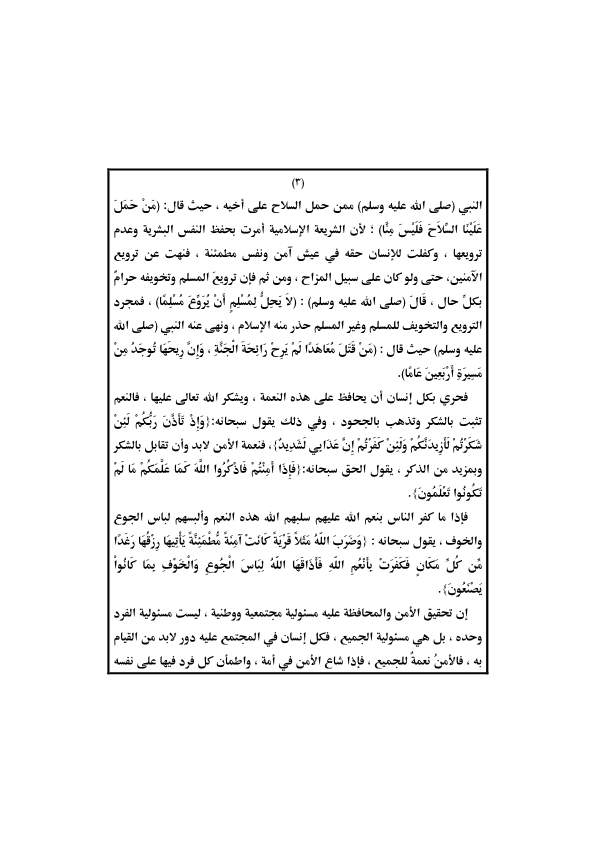 (٣)
النبي (صلى الله عليه وسلم) ممن حمل السلاح على أخيه ، حيث قال: (مَنْ حَمَلَ
عَلَيْنَا السِّلَاحَ فَلَيْسَ مِنَّا) ؛ لأن الشريعة الإسلامية أمرت بحفظ النفس البشرية وعدم
ترويعها ، وكفلت للإنسان حقه في عيش آمن ونفس مطمئنة ، فنهت عن ترويع
الآمنين، حتى ولو كان على سبيل المزاح ، ومن ثم فإن ترويعَ المسلم وتخويفه حرامٌ
بكلِّ حال ، قَالَ (صلى الله عليه وسلم) : (لاَ يَحِلُّ لِمُسْلِمٍ أَنْ يُرَوِّعَ مُسْلِمًا) ، فمجرد
الترويع والتخويف للمسلم وغير المسلم حذر منه الإسلام ، ونهى عنه النبي (صلى الله
عليه وسلم) حيث قال : (مَنْ قَتَلَ مُعَاهَدًا لَمْ يَرِحْ رَائِحَةَ الْجَنَّةِ ، وَإِنَّ رِيحَهَا تُوجَدُ مِنْ
مَسِيرَةِ أَرْبَعِينَ عَامًا).
فحري بكل إنسان أن يحافظ على هذه النعمة ، ويشكر الله تعالى عليها ، فالنعم
تثبت بالشكر وتذهب بالجحود ، وفي ذلك يقول سبحانه:{وَإِذْ تَأَذَّنَ رَبُّكُمْ لَئِنْ
شَكَرْتُمْ لَأَزِيدَنَّكُمْ وَلَئِنْ كَفَرْتُمْ إِنَّ عَذَابِي لَشَدِيدٌ}، فنعمة الأمن لابد وأن تقابل بالشكر
وبمزيد من الذكر ، يقول الحق سبحانه:{فَإِذَا أَمِنْتُمْ فَاذْكُرُوا اللَّهَ كَمَا عَلَّمَكُمْ مَا لَمْ
تَكُونُوا تَعْلَمُونَ}.
فإذا ما كفر الناس بنعم الله عليهم سلبهم الله هذه النعم وألبسهم لباس الجوع
والخوف ، يقول سبحانه : {وَضَرَبَ اللّهُ مَثَلاً قَرْيَةً كَانَتْ آمِنَةً مُّطْمَئِنَّةً يَأْتِيهَا رِزْقُهَا رَغَدًا
مِّن كُلِّ مَكَانٍ فَكَفَرَتْ بِأَنْعُمِ اللّهِ فَأَذَاقَهَا اللّهُ لِبَاسَ الْجُوعِ وَالْخَوْفِ بِمَا كَانُواْ
يَصْنَعُونَ}.
إن تحقيق الأمن والمحافظة عليه مسئولية مجتمعية ووطنية ، ليست مسئولية الفرد
وحده ، بل هي مسئولية الجميع ، فكل إنسان في المجتمع عليه دور لابد من القيام
به ، فالأمنُ نعمةٌ للجميع ، فإذا شاع الأمن في أمة ، واطمأن كل فرد فيها على نفسه